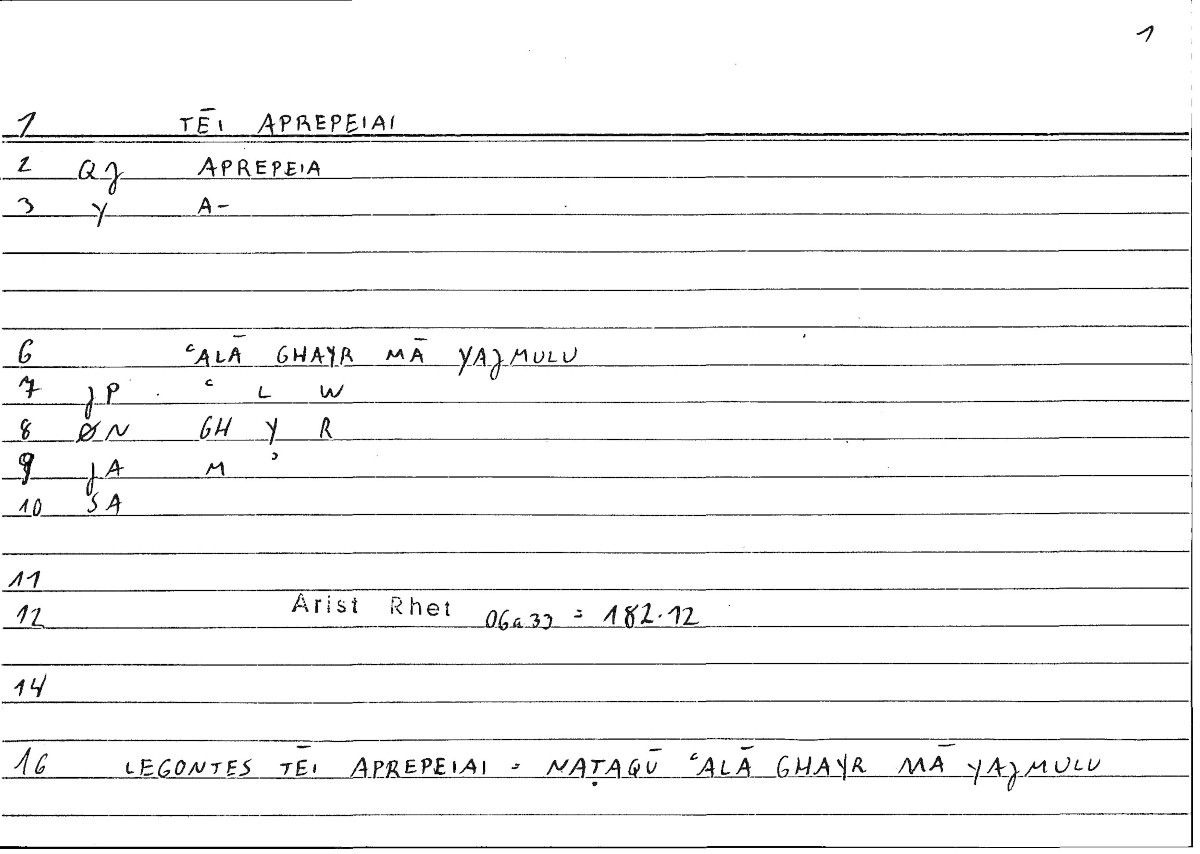 1
1 TĒI APREPEIAI
2 QJ APREPEIA
3 Y A-
6 ʿALĀ GHAYR MĀ YAJMULU
7 JP ʿ L W
8 ØN GH Y R
9 JA M ʾ
10 SA
11
12 Arist Rhet 06a33 = 182.12
14
16 LEGONTES TĒI APREPEIAI = NAṬAQŪ ʿALĀ GHAYR MĀ YAJMULU